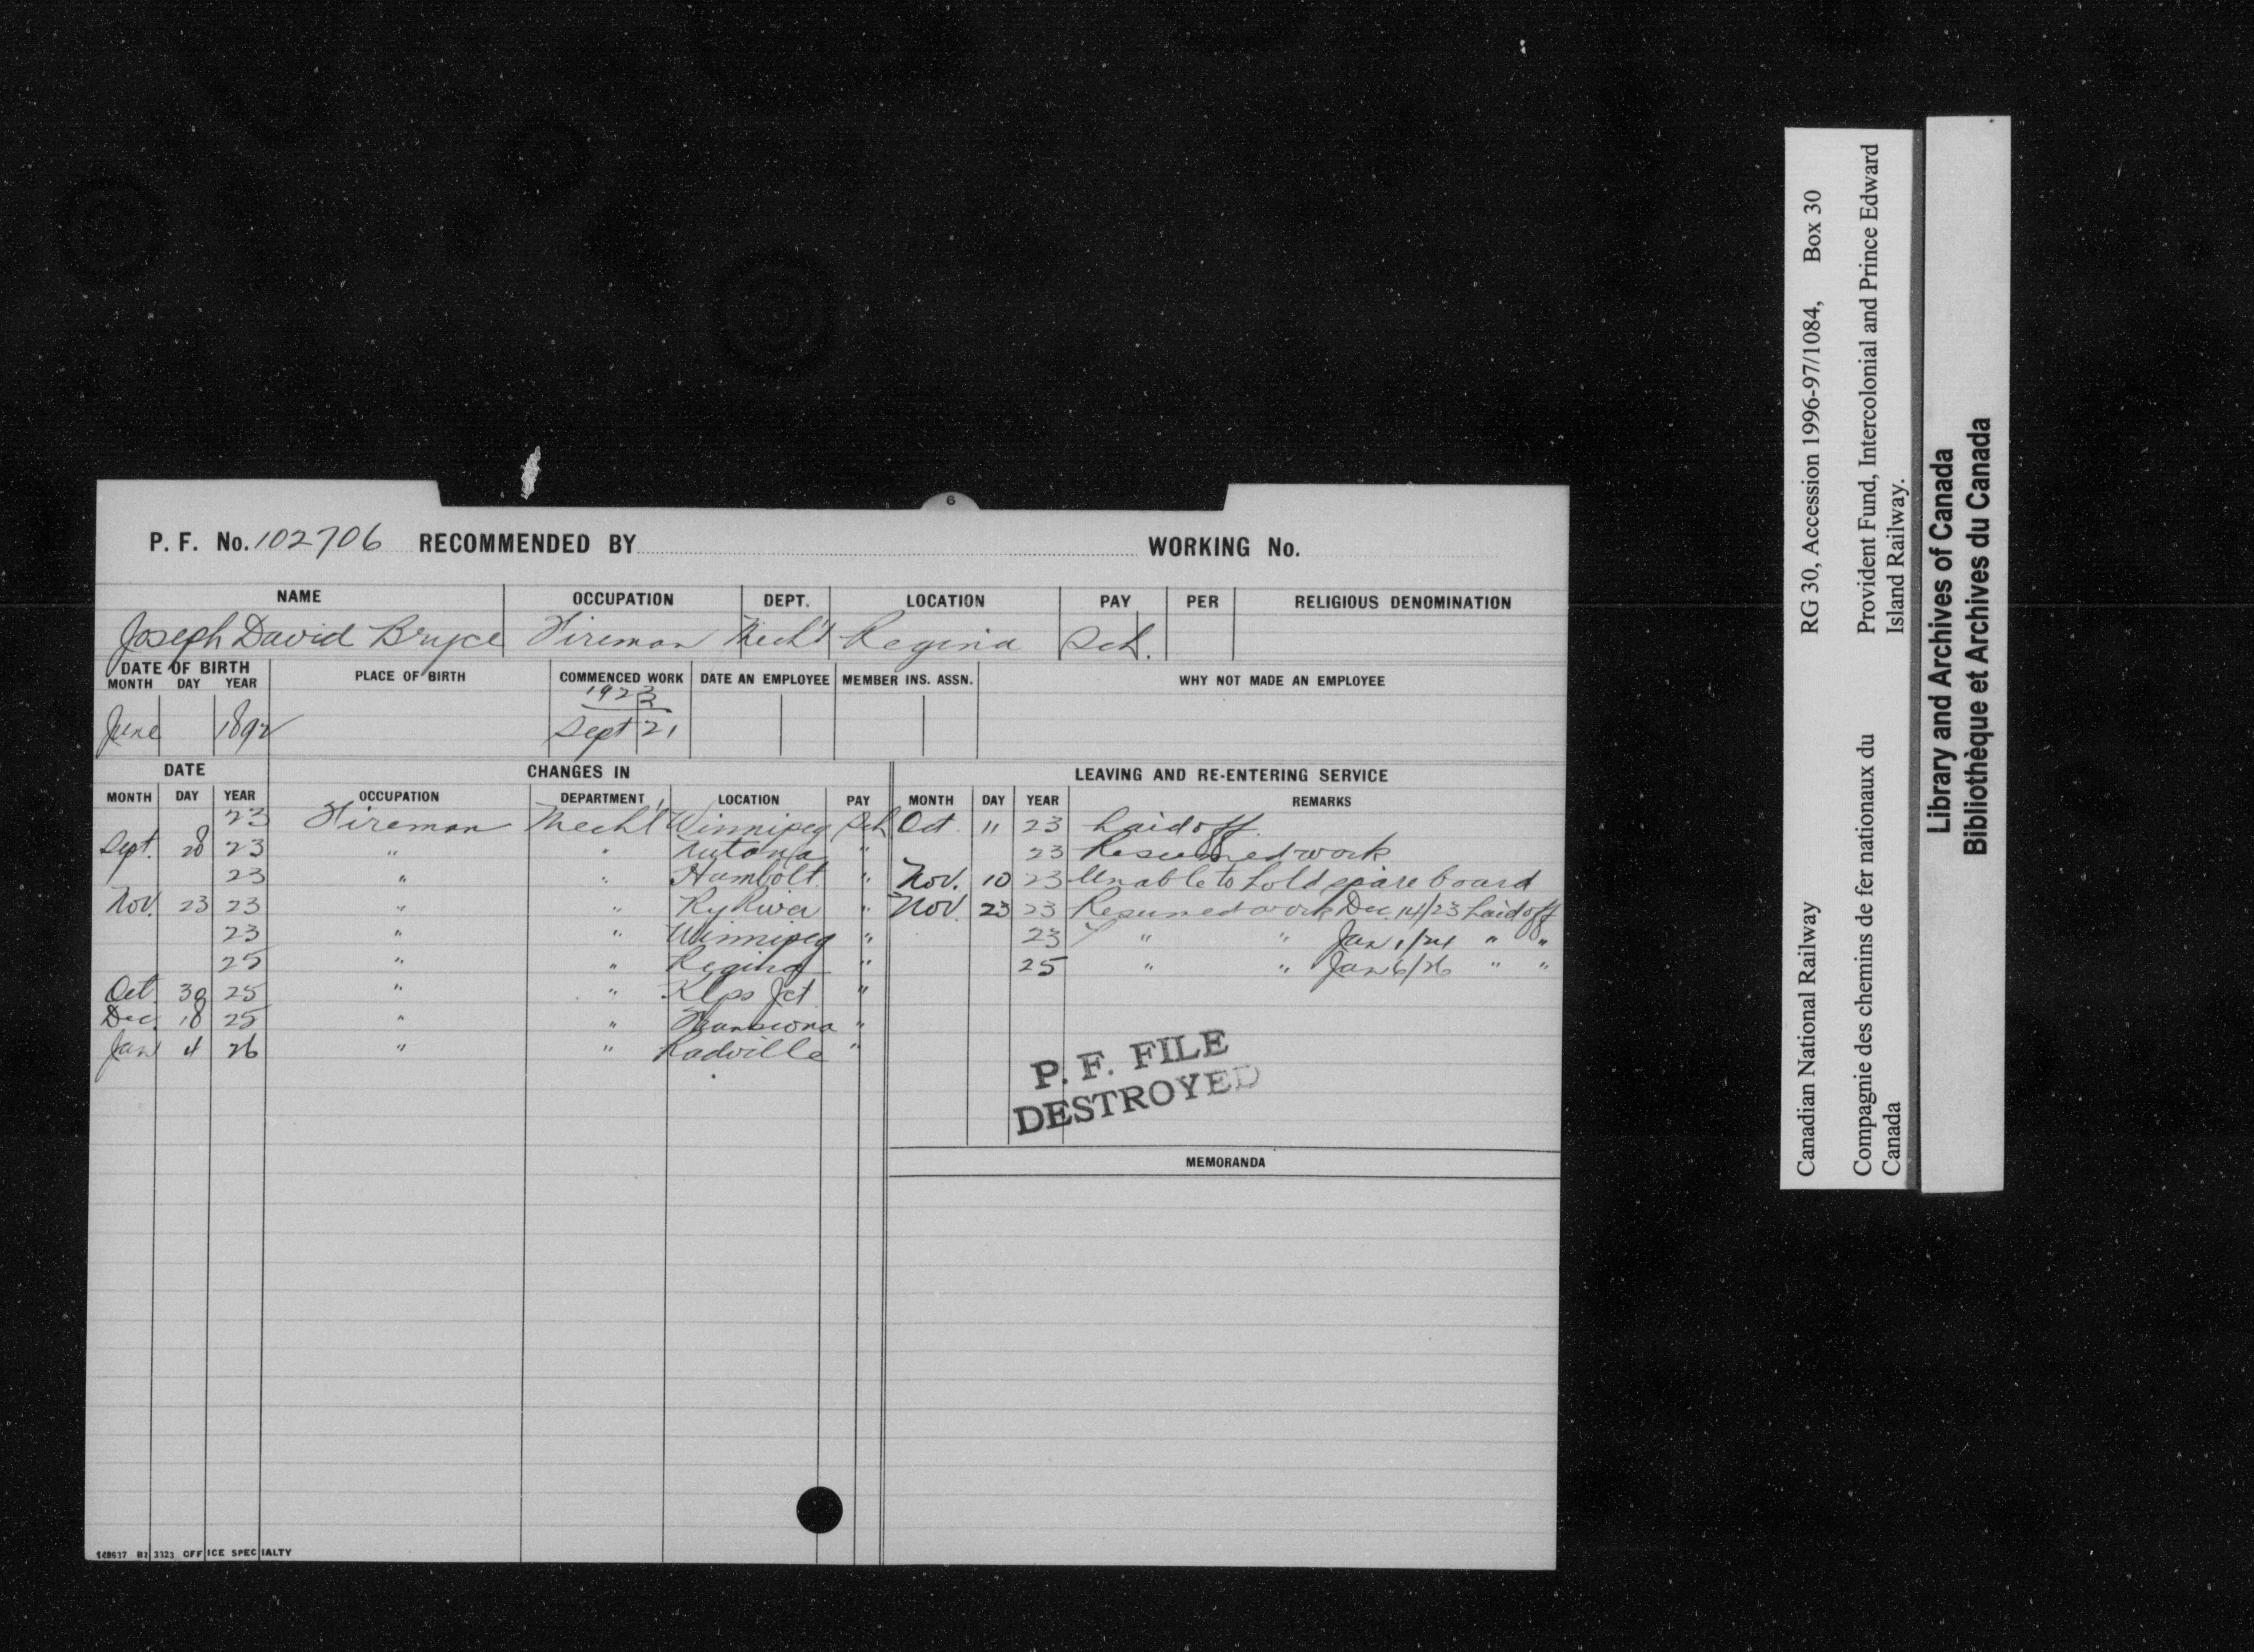 6
P. F. No. 102706 RECOMMENDED BY WORKING No.
NAME OCCUPATION DEPT. LOCATION PAY PER RELIGIOUS DENOMINATION
Joseph David Bryce Fireman Mech'l Regina Sch.
DATE OF BIRTH PLACE OF BIRTH COMMENCED WORK DATE AN EMPLOYEE MEMBER INS. ASSN. WHY NOT MADE AN EMPLOYEE
MONTH DAY YEAR
1923
June 1892 Sept 21
DATE CHANGES IN LEAVING AND RE-ENTERING SERVICE
MONTH DAY YEAR OCCUPATION DEPARTMENT LOCATION PAY MONTH DAY YEAR REMARKS
23 Fireman Mech'l Winnipeg Sch Oct. 11 23 Laid off.
Sept. 28 23 " " Nutana " 23 Resumed work
23 " " Humbolt " Nov. 10 23 Unable to hold spare board
Nov. 23 23 " " " Nov. 23 23 Resumed work Dec. 14/23 Laid off
23 " " Winnipeg " 23 " " Jan 1/24 " "
25 " " Regina " 25 " " Jan 6/26 " "
Oct. 30 25 " " Jct "
Dec. 18 25 " " Transcona "
Jan 4 26 " " Radville "
P. F. FILE
DESTROYED
MEMORANDA
OFFICE SPECIALTY
Canadian National Railway RG 30, Accession 1996-97/1084, Box 30
Compagnie des chemins de fer nationaux du Provident Fund, Intercolonial and Prince Edward
Canada Island Railway.
Library and Archives of Canada
Bibliothèque et Archives du Canada